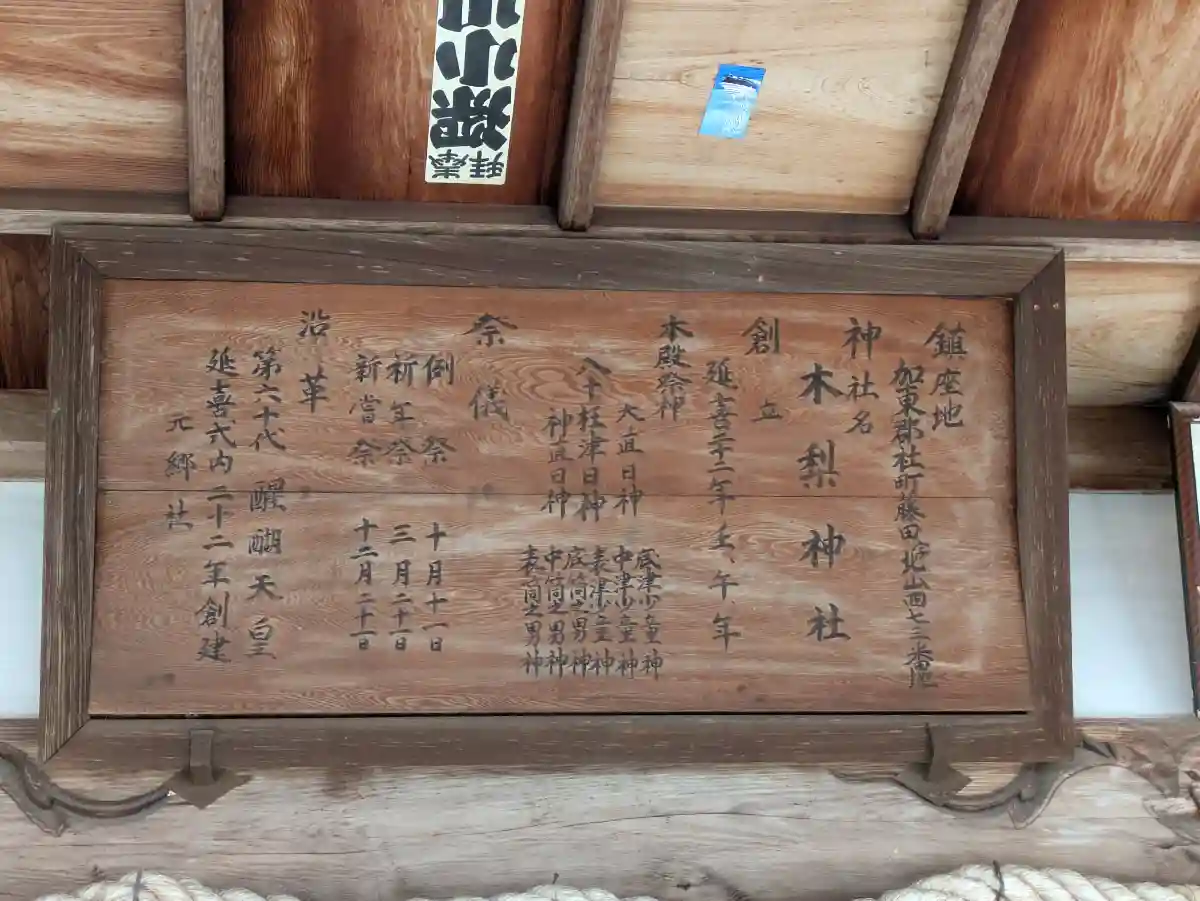 鎮座地
加東郡社町藤田北山四七三番地
神社名
木梨神社
創立
延喜二十二年壬、午、年
本殿祭神
大直日神
八十枉津日神
神直日神
底津少童神
中津少童神
表津少童神
底筒之男神
中筒之男神
表筒之男神
祭儀
例祭 十月十一日
祈年祭 三月二十一日
新嘗祭 十二月二十一日
沿革
第六十代 醍醐天皇
延喜式内二十二年創建
元郷社
奉拝